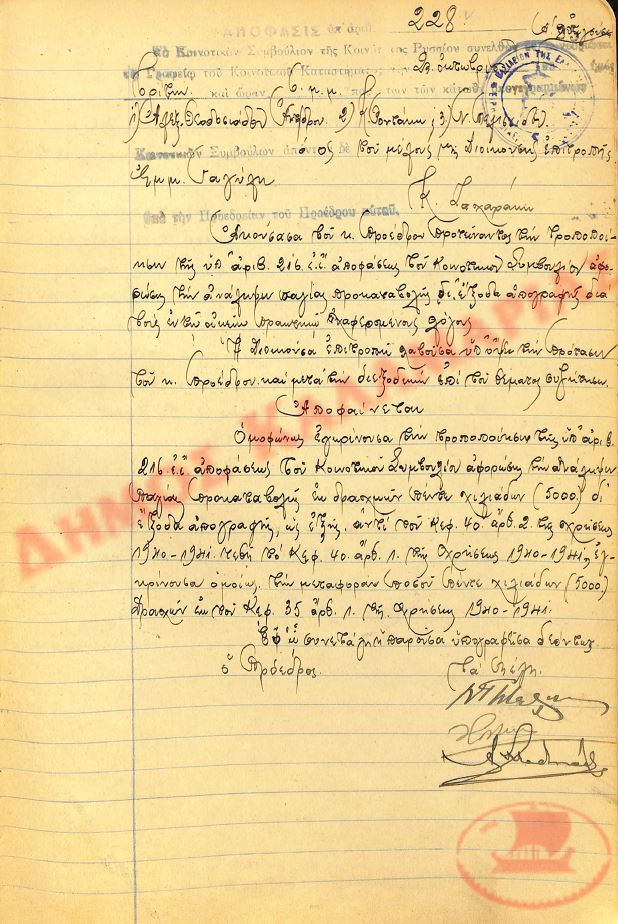 ΑΠΟΦΑΣΙΣ ὑπ' ἀριθ. 228
Τὸ Κοινοτικὸν Συμβούλιον τῆς Κοινότητος Ρυσσίου συνελθὸν
Γραφεῖον τοῦ Κοινοτικοῦ Καταστήματος 22 Ὀκτωβρίου
Τρίτην καὶ ὥραν 6 μ.μ. τῶν κάτωθι
1) Ἀλεξ. 2) Κ. 3) Ν.
Κοινοτικῶν Συμβούλων ἀπόντος δὲ τοῦ μέλους τῆς Διοικούσης Ἐπιτροπῆς
Ἐμμ.
ὑπὸ τὴν Προεδρείαν τοῦ Προέδρου αὐτοῦ, Κ.
Ἀκούσασα τοῦ κ. Προέδρου προτείναντος τὴν τροποποί-
ησιν τῆς ὑπ' ἀριθ. 216 ἐ.ἔ. ἀποφάσεως τοῦ Κοινοτικοῦ Συμβουλίου ἀφο-
ρώσης τὴν ἀνάληψιν παγίας προκαταβολῆς δι' ἔξοδα ἀπογραφῆς διὰ
τοὺς ἐν τῷ οἰκείῳ πρακτικῷ ἀναφερομένους λόγους
Ἡ Διοικοῦσα Ἐπιτροπὴ λαβοῦσα ὑπ' ὄψιν τὴν πρότασιν
τοῦ κ. Προέδρου καὶ μετὰ τὴν διεξοδικὴν ἐπὶ τοῦ θέματος συζήτησιν
Ἀποφαίνεται
Ὁμοφώνως ἐγκρίνουσα τὴν τροποποίησιν τῆς ὑπ' ἀριθ.
216 ἐ.ἔ. ἀποφάσεως τοῦ Κοινοτικοῦ Συμβουλίου ἀφορώσης τὴν ἀνάληψιν
παγίας προκαταβολῆς ἐκ δραχμῶν πέντε χιλιάδων (5000) δι'
ἔξοδα ἀπογραφῆς, ὡς ἑξῆς, ἀντὶ τοῦ Κεφ. 40 ἄρθ. 2 τῆς χρήσεως
1940-1941 τεθῇ τὸ Κεφ. 40 ἄρθ. 1. τῆς χρήσεως 1940-1941, ἐγ-
κρίνουσα ὁμοίως τὴν μεταφορὰν ποσοῦ πέντε χιλιάδων (5000)
δραχμῶν ἐκ τοῦ Κεφ. 35 ἄρθ. 1. τῆς χρήσεως 1940-1941.
Ἐφ' ᾧ συνετάγη ἡ παροῦσα ὑπογραφεῖσα δεόντως
Ὁ Πρόεδρος. Τὰ Μέλη
ΔΗΜΟΣ ΚΑΛΑΜΑΡΙΑΣ